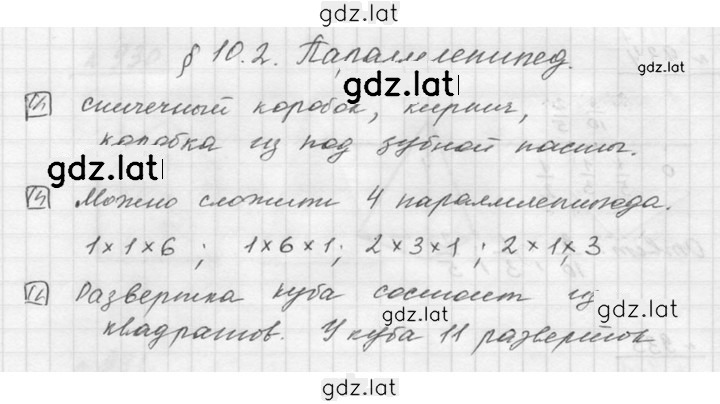 gdz.lat
§ 10.2. Параллелепипед.
gdz.lat
В спичечный коробок, кирпич,
коробка из под зубной пасты.
gdz.lat
В Можно сложить 4 параллелепипеда.
1×1×6 ; 1×6×1; 2×3×1 ; 2×1×3
В Развертка куба состоит из
квадратов. У куба 11 разверток
gdz.lat
gdz.lat
gdz.lat